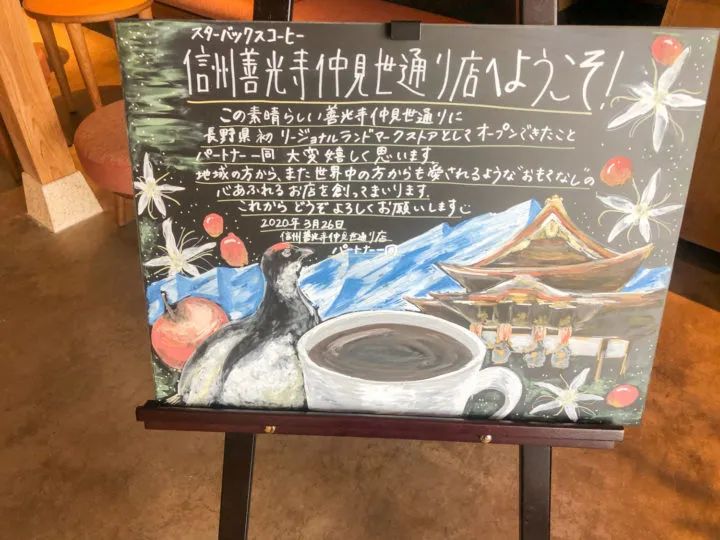 スターバックスコーヒー
信州善光寺仲見世通り店へようこそ!
この素晴らしい善光寺仲見世通りに
長野県初 リージョナルランドマークストアとしてオープンできたこと
パートナー一同 大変嬉しく思います
地域の方から、また世界中の方からも愛されるような"おもてなし"の
心あふれるお店を創ってまいります
これから どうぞよろしくお願いします
2020年3月26日
信州善光寺仲見世通り店
パートナー一同